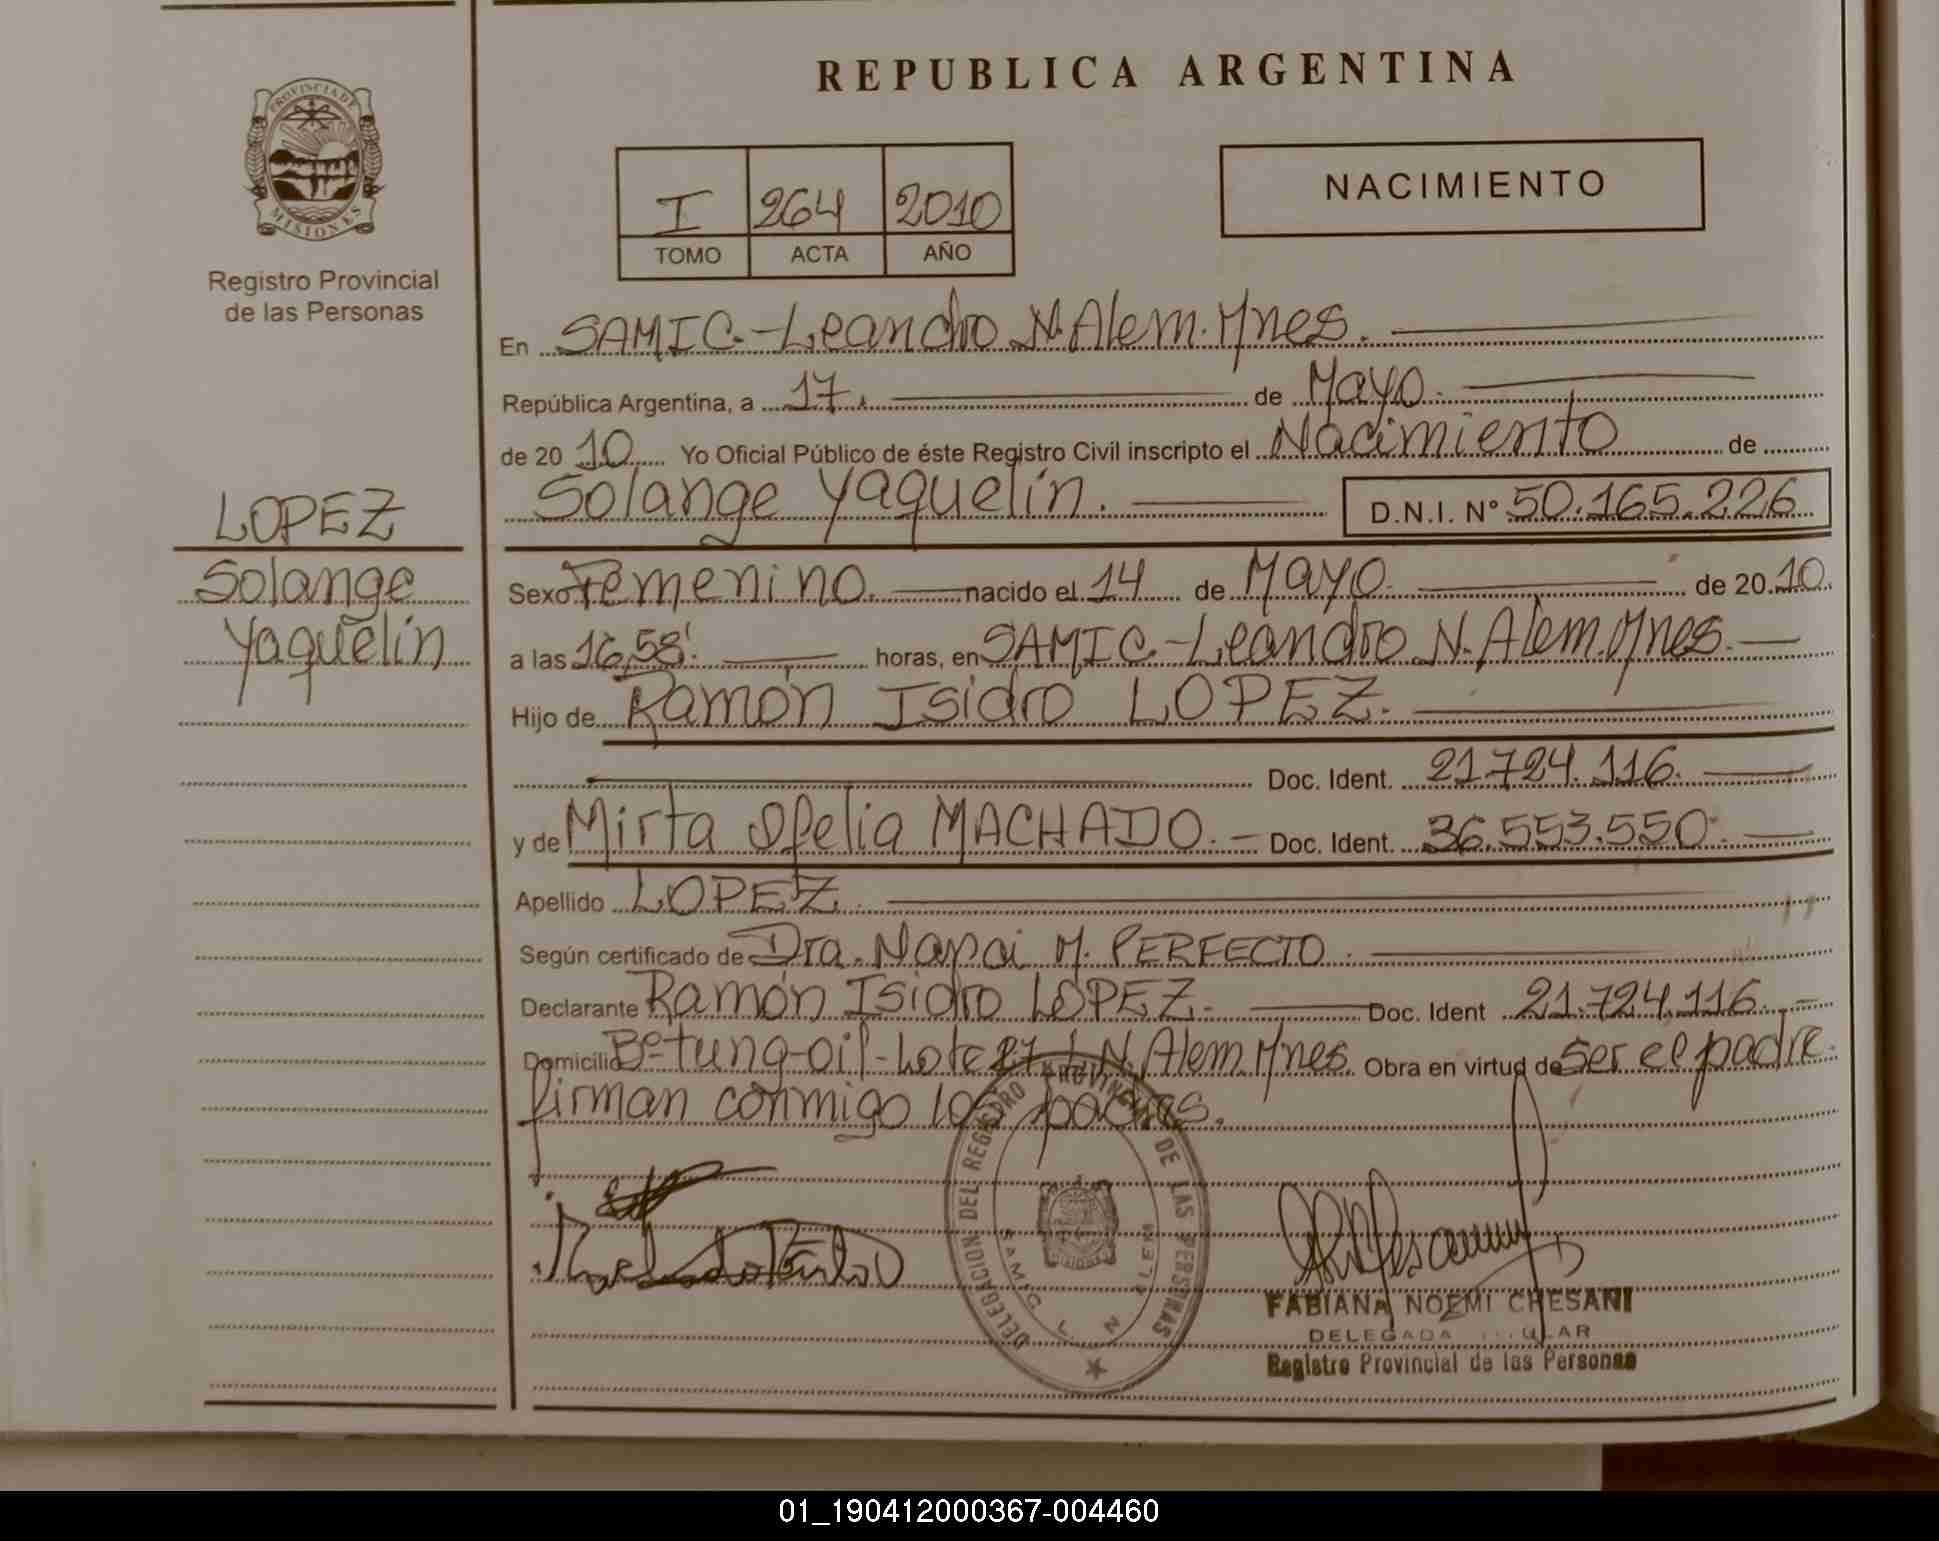 REPUBLICA ARGENTINA
PROVINCIA DE
MISIONES
Registro Provincial
de las Personas
I 264 2010
TOMO ACTA AÑO
NACIMIENTO
En SAMIC.-Leandro N. Alem. Mnes.
República Argentina, a 17. de Mayo.
de 20 10 Yo Oficial Público de éste Registro Civil inscripto el Nacimiento de
Solange Yaquelín. D.N.I. N° 50.165.226
LOPEZ
Solange
Yaquelín
Sexo Femenino. nacido el 14 de Mayo. de 20 10.
a las 16,58' horas, en SAMIC.-Leandro N. Alem. Mnes.
Hijo de Ramón Isidro LOPEZ.
Doc. Ident. 21.724.116.
y de Mirta Ofelia MACHADO. Doc. Ident. 36.553.550.
Apellido LOPEZ.
Según certificado de Dra. M. PERFECTO.
Declarante Ramón Isidro LOPEZ. Doc. Ident 21.724.116.
Domicilio B° tung-oil-Lote 27 L.N. Alem. Mnes. Obra en virtud de Ser el padre.
firman conmigo los padres.
DELEGACION DEL REGISTRO PROVINCIAL DE LAS PERSONAS
SAMIC L N ALEM
MISIONES
FABIANA NOEMI CHESANI
DELEGADA
Registro Provincial de las Personas
01_190412000367-004460